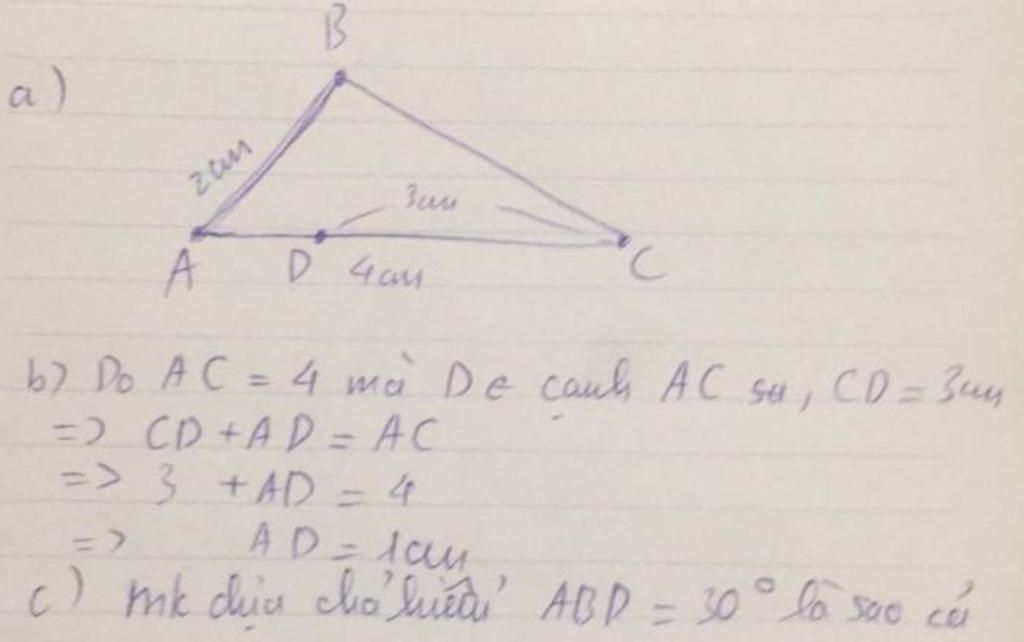 a)
B
2cm
3cm
A D 4cm C
b) Do AC = 4 mà D ∈ cạnh AC sa, CD = 3cm
=> CD + AD = AC
=> 3 + AD = 4
=> AD = 1cm
c) mk chịu chả hiểu ABD = 30° là sao cả